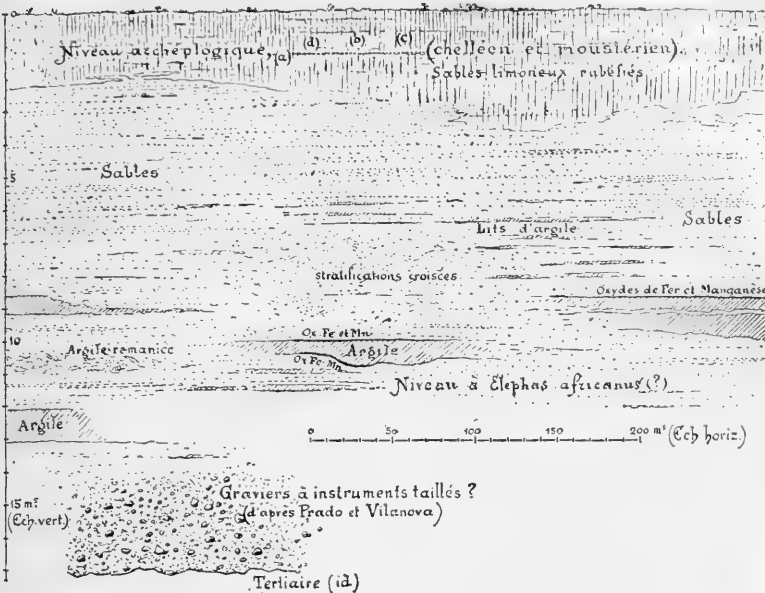 0
Niveau archéologique, (a) (d) (b) (c) (chelléen et moustérien)
Sables limoneux rubéfiés
5
Sables
Sables
Lits d'argile
stratifications croisées
Oxydes de Fer et Manganèse
Ox. Fe et Mn.
10
Argile remaniée
Argile
Ox Fe Mn.
Niveau à Elephas africanus(?)
Argile
0 50 100 200 ms (Ech horiz.)
Graviers à instruments taillés ?
15 ms
(d'après Prado et Vilanova)
(Ech.vert.)
Tertiaire (id)